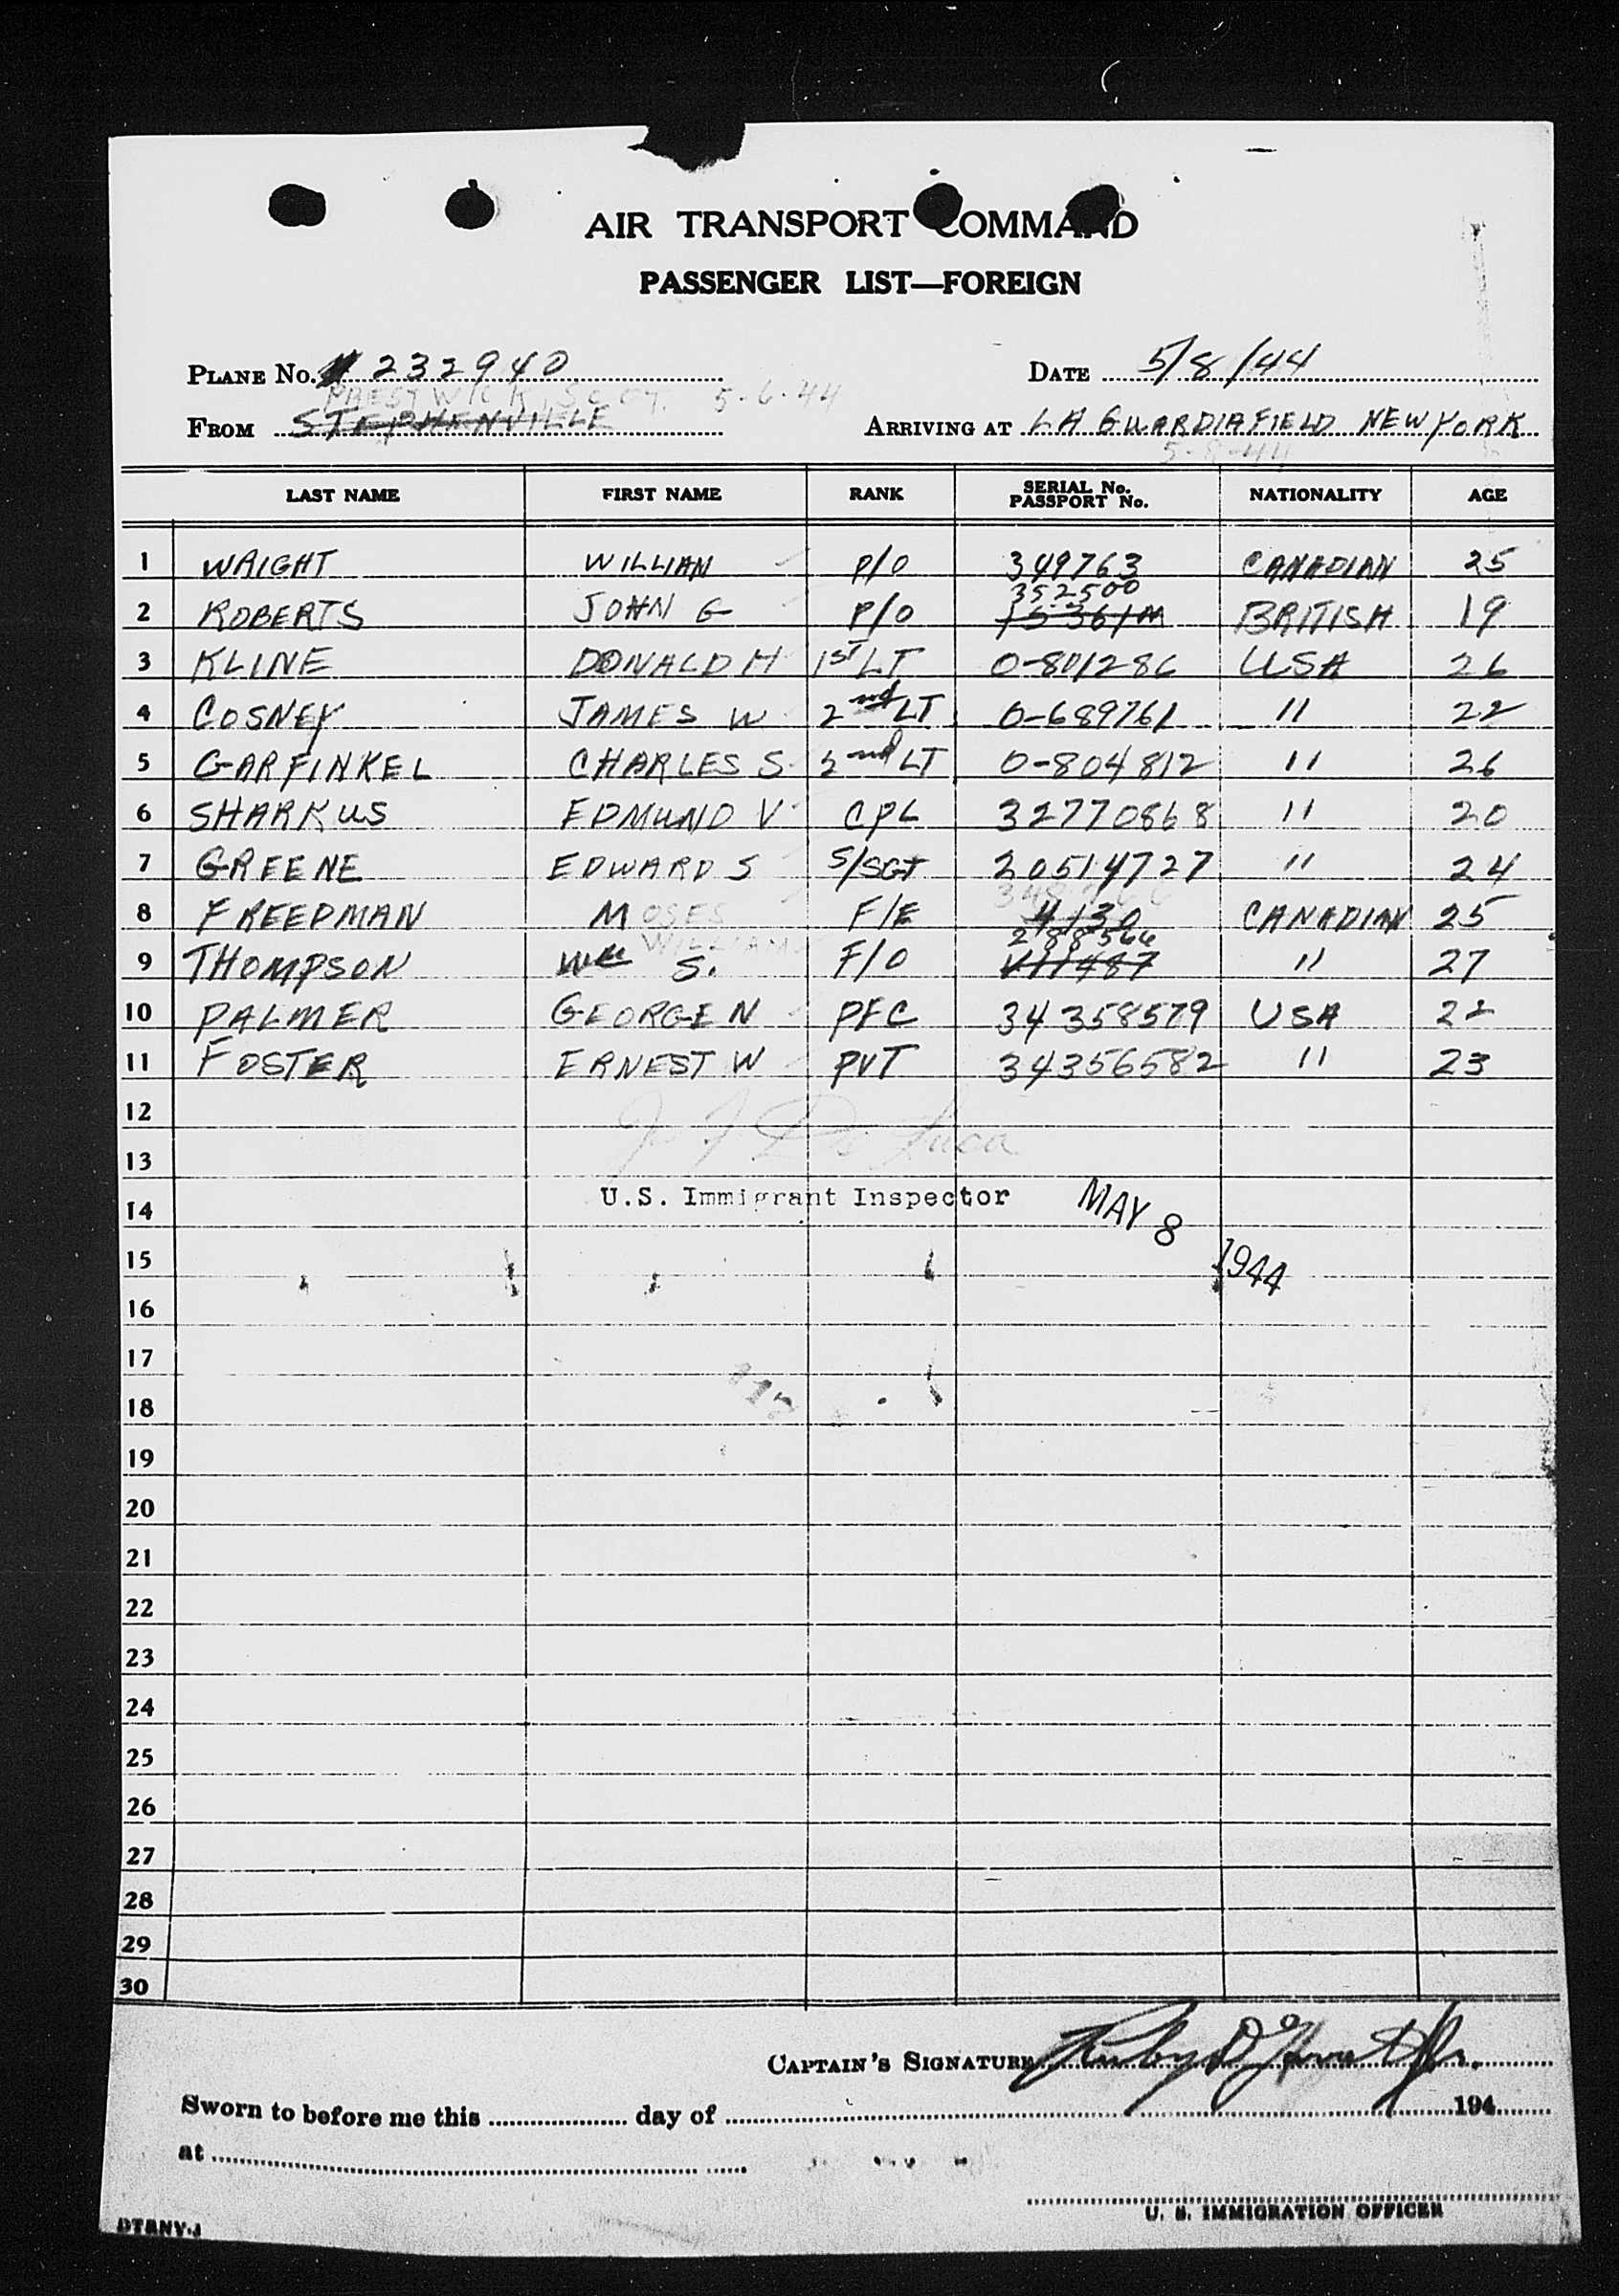 AIR TRANSPORT COMMAND
PASSENGER LIST—FOREIGN
PLANE No. 232940
DATE 5/8/44
PRESTWICK, SCOT. 5-6-44
FROM STEPHENVILLE
ARRIVING AT LA GUARDIA FIELD NEW YORK
5-8-44
LAST NAME FIRST NAME RANK SERIAL No. PASSPORT No. NATIONALITY AGE
1 WRIGHT WILLIAN P/O 349763 CANADIAN 25
352500
2 ROBERTS JOHN G P/O BRITISH 19
3 KLINE DONALD H 1ST LT O-801286 USA 26
4 COSNEY JAMES W 2nd LT O-689761 " 22
5 GARFINKEL CHARLES S 2nd LT O-804812 " 26
6 SHARKUS EDMUND V CPL 32770868 " 20
7 GREENE EDWARD S S/SGT 20514727 " 24
8 FREEDMAN MOSES F/E 4130 CANADIAN 25
WILLIAM 288566
9 THOMPSON Wm S. F/O V11487 " 27
10 PALMER GEORGE N PFC 34358579 USA 22
11 FOSTER ERNEST W PVT 34356582 " 23
12
13
U.S. Immigrant Inspector MAY 8 1944
14
15
16
17
18
19
20
21
22
23
24
25
26
27
28
29
30
CAPTAIN'S SIGNATURE
Sworn to before me this day of 194
at
U. S. IMMIGRATION OFFICER
DTBNY-1